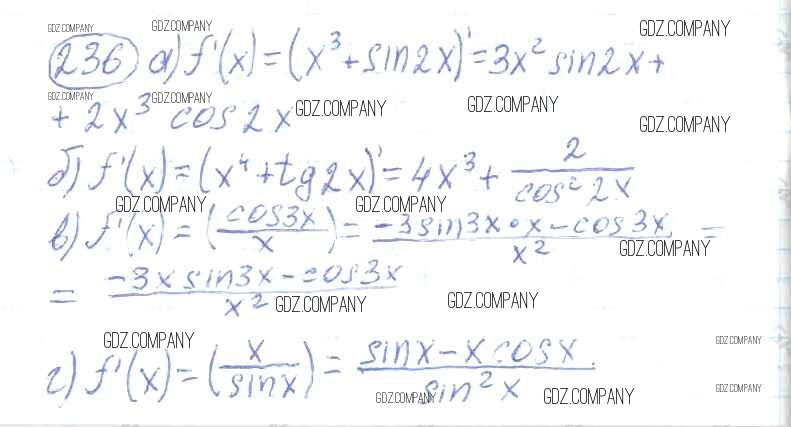 GDZ.COMPANY GDZ.COMPANY GDZ.COMPANY
236 а) f'(x) = (x³ + sin2x)' = 3x² sin2x +
GDZ.COMPANY GDZ.COMPANY
+ 2x³ cos2x GDZ.COMPANY GDZ.COMPANY GDZ.COMPANY
б) f'(x) = (x⁴ + tg2x)' = 4x³ + 2/cos² 2x
GDZ.COMPANY GDZ.COMPANY
в) f'(x) = (cos3x/x) = (-3sin3x•x - cos3x)/x² =
GDZ.COMPANY
= (-3x sin3x - cos3x)/x²
GDZ.COMPANY GDZ.COMPANY
GDZ.COMPANY GDZ.COMPANY
г) f'(x) = (x/sinx) = (sinx - x cosx)/sin²x
GDZ.COMPANY GDZ.COMPANY GDZ.COMPANY